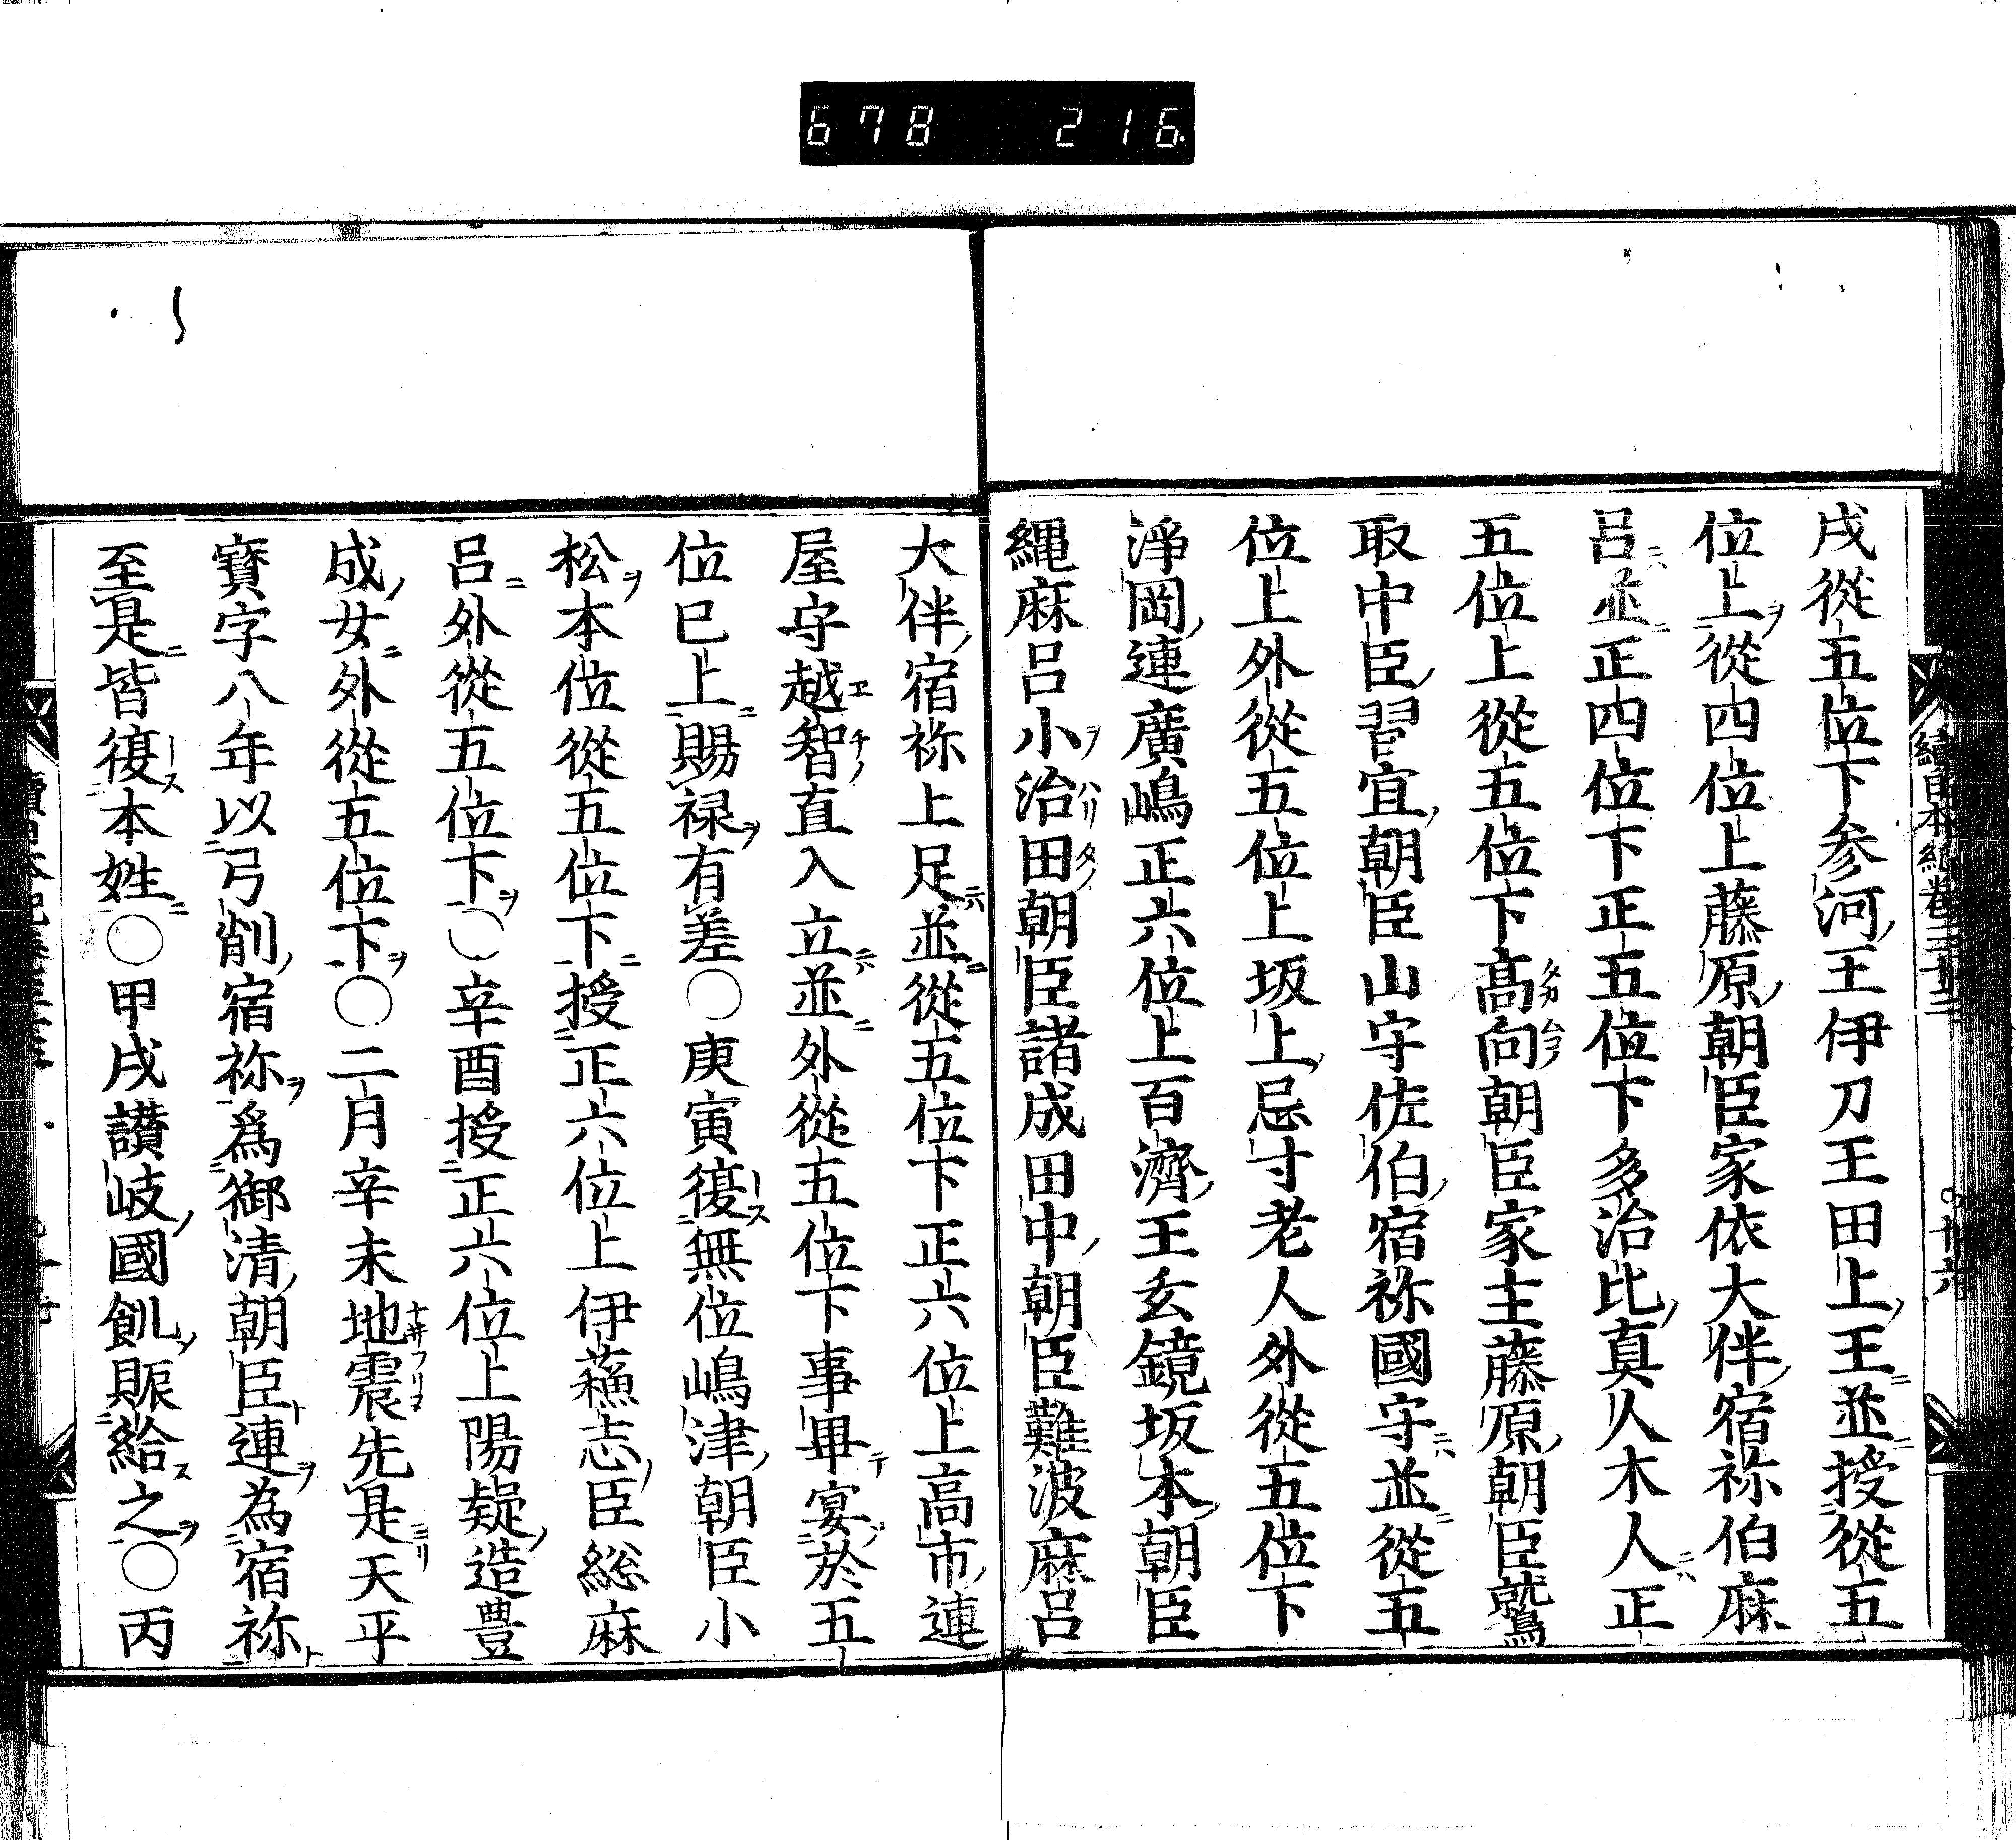 678 216
續日本紀卷三十二
戌從五位下参河王伊刀王田上王並授從五
位上從四位上藤原朝臣家依大伴宿祢伯麻
呂並正四位下正五位下多治比真人木人正
五位上從五位下髙向朝臣家主藤原朝臣鷲
取中臣習宜朝臣山守佐伯宿祢國守並從五
位上外從五位上坂上忌寸老人外從五位下
淨岡連廣嶋正六位上百濟王玄鏡坂本朝臣
縄麻呂小治田朝臣諸成田中朝臣難波麻呂
大伴宿祢上足並從五位下正六位上高市連
屋守越智直入立並外從五位下事畢宴於五
位已上賜禄有差○庚寅復無位嶋津朝臣小
松本位從五位下授正六位上伊蘓志臣総麻
呂外從五位下○辛酉授正六位上陽疑造豊
成女外從五位下○二月辛未地震先是天平
寳字八年以弓削宿祢爲御清朝臣連為宿祢
至是皆復本姓○甲戌讃岐國飢賑給之○丙